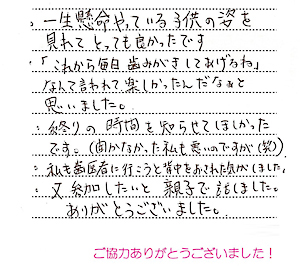 ・一生懸命やっている子供の姿を
見れてとっても良かったです
・「これから毎日歯みがきしてあげるね」
なんて言われて楽しかったんだなぁと
思いました。
・終りの時間を知らせてほしかった
です。(聞かなかった私も悪いのですが(笑))
・私も歯医者に行こうと背中をおされた気がしました。
・又参加したいと親子で話しました。
ありがとうございました。
ご協力ありがとうございました！